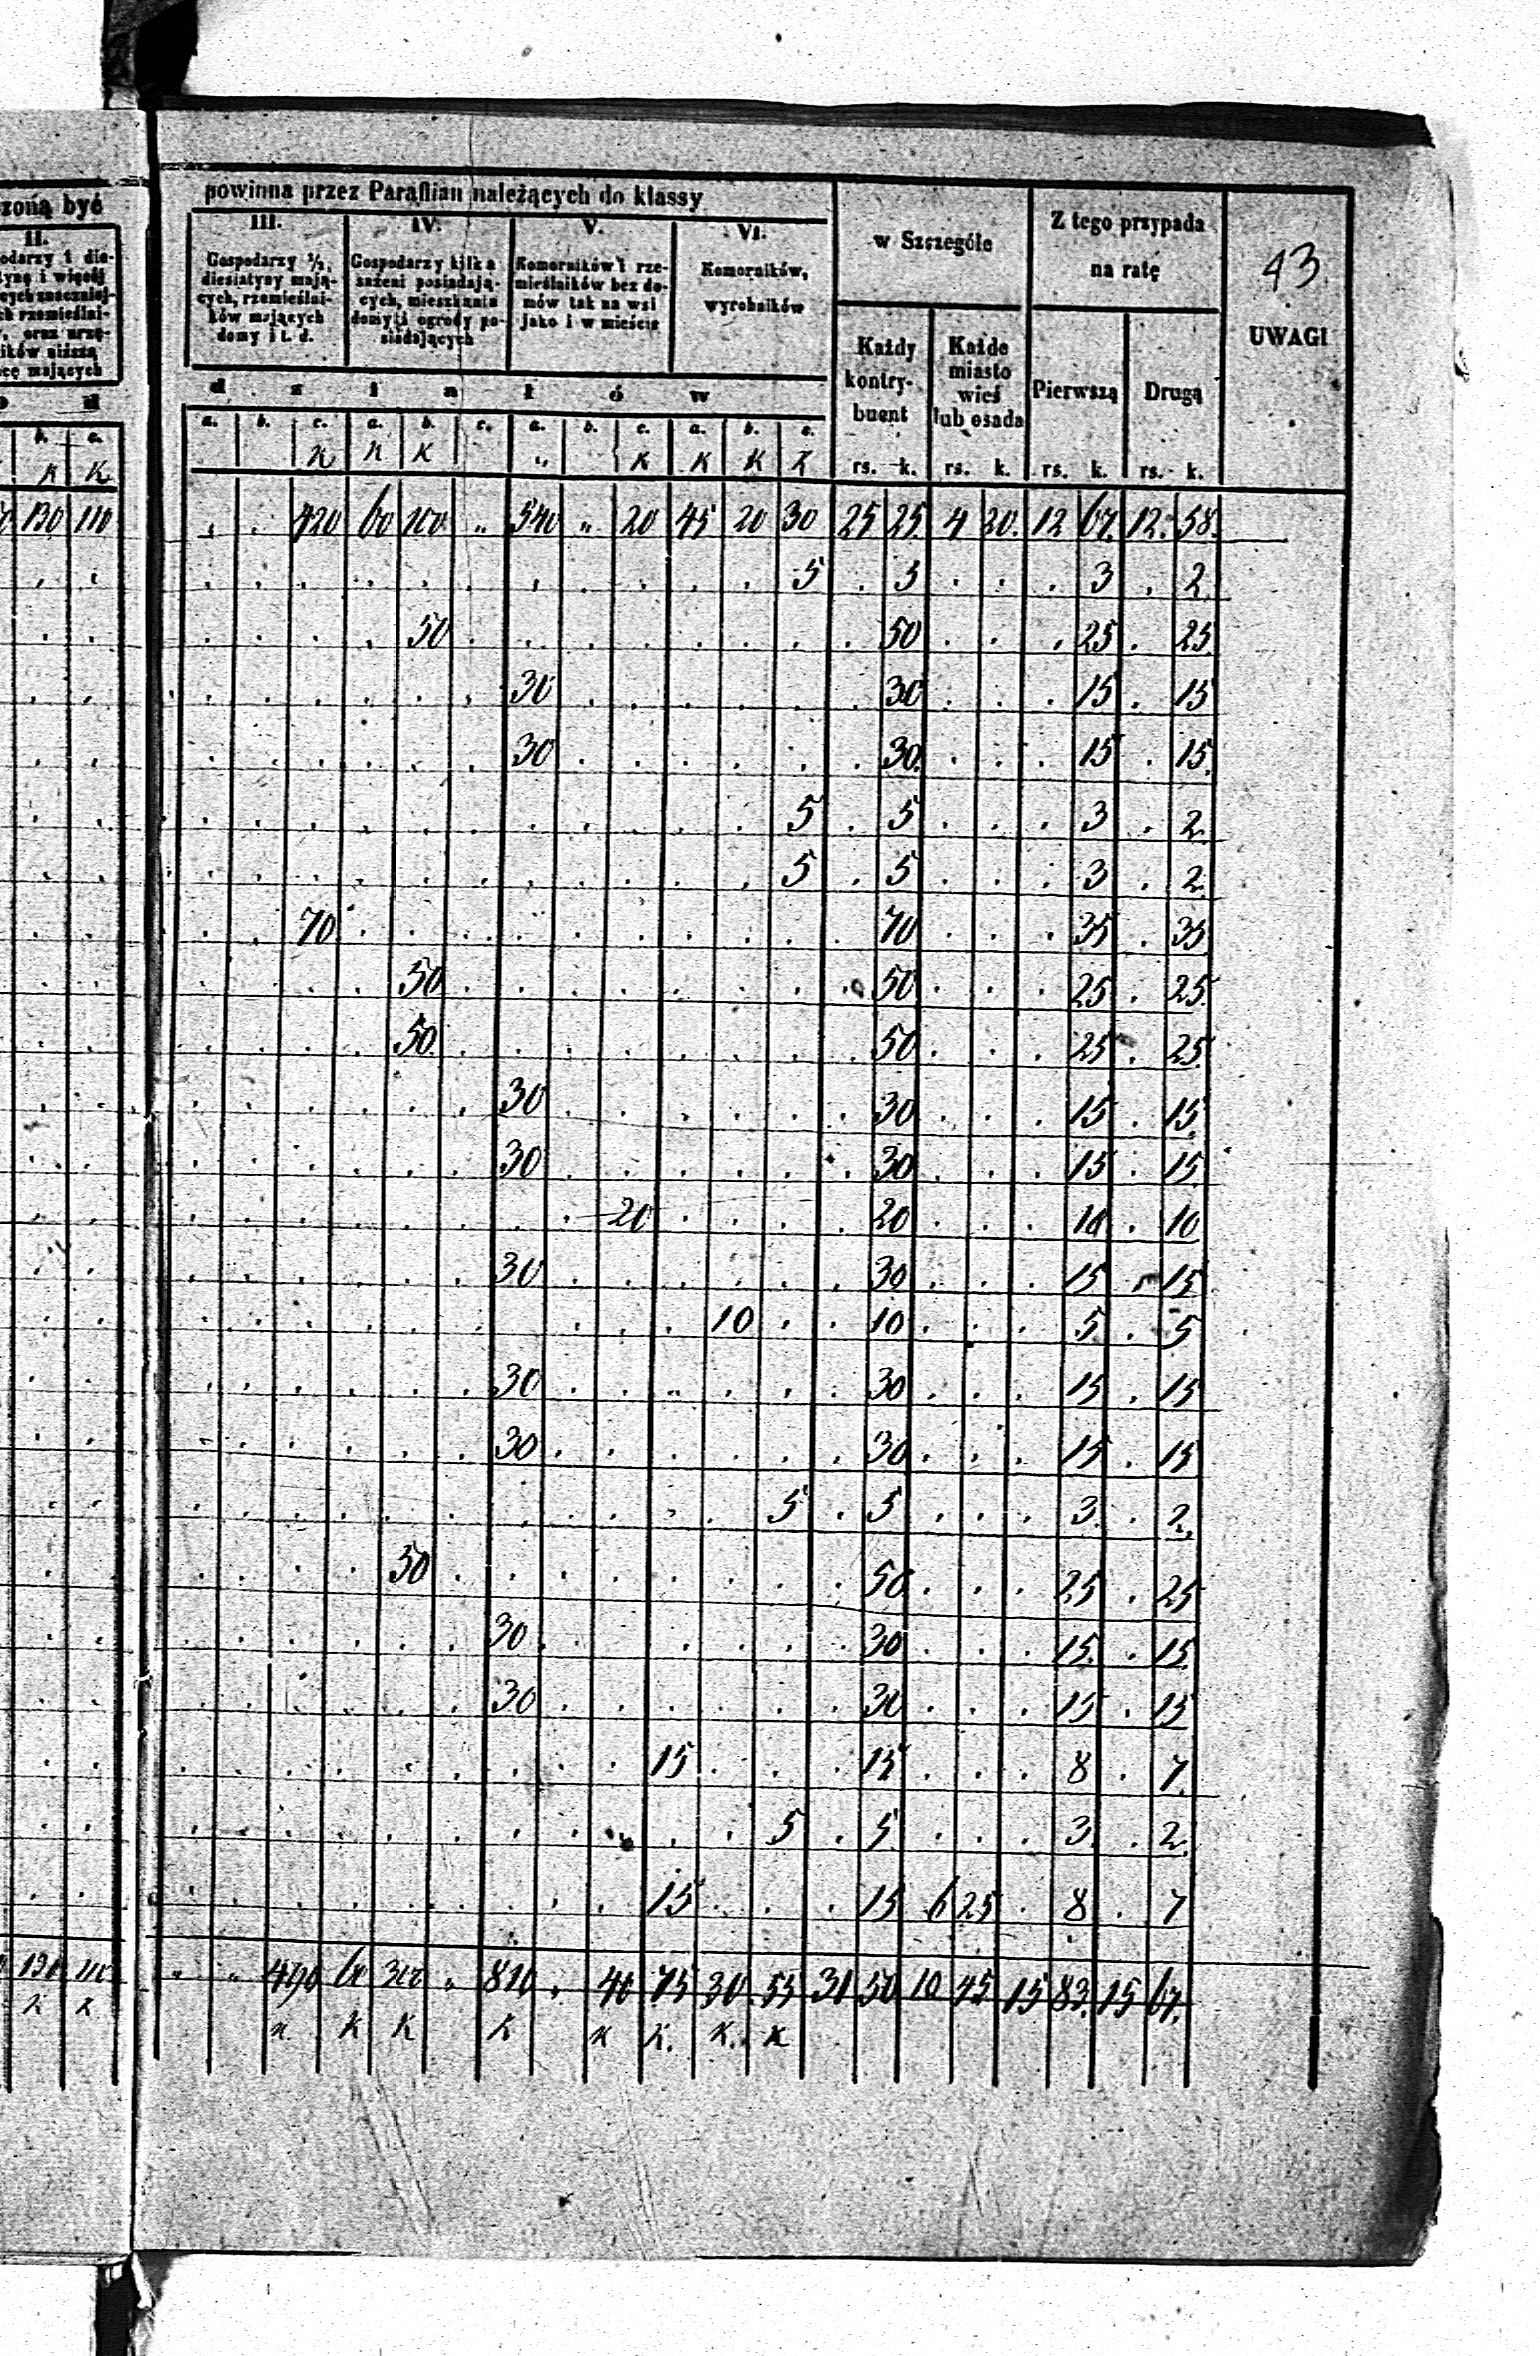 zoną być powinna przez Parafian należących do klassy w Szczególe Z tego przypada na ratę 43 UWAGI
II. III. IV. V. VI.
Gospodarzy ½,
diesiatyny mają-
cych, rzemieślni-
ków mających
domy i t. d.
Gospodarzy kilka
sażeni posiadają-
cych, mieszkania
domy i ogrody po-
siadających
Komorników i rze-
mieślników bez do-
mów tak na wsi
jako i w mieście
Komorników,
wyrobników
Każdy
kontry-
buent
Każde
miasto
wieś
lub osada
Pierwszą Drugą
d z i a ł ó w
b. c. a. b. c. a. b. c. a. b. c. a. b. c. rs. k. rs. k. rs. k. rs. k.
K K K K K „ K K K K
130 110 „ . 420 60 200 „ 540 „ 20 45 20 30 25 25. 4 20. 12 67. 12. 58.
5 . 5 . 3 . 2
50 . 50 . 25 . 25
30 . 30 . 15 . 15
30 . 30. . 15 . 15.
5 . 5 . 3 . 2
5 . 5 . 3 . 2
70 . 70 . 35 . 35
50 . 50 . 25 . 25.
50 . 50 . 25 . 25
30 . 30 . 15 . 15
30 . 30 . 15 . 15
20 . 20 . 10 . 10
30 . 30 . 15 . 15
10 . 10 . 5 . 5
30 . 30 . 15 . 15
30 . 30 . 15 . 15
5 . 5 . 3. . 2
50 . 50 . 25 . 25
30 . 30 . 15. . 15
30 . 30 . 15 . 15
15 . 15 . 8 . 7.
5 . 5 . 3. . 2
15 . 15 6 25 . 8 . 7
130 110 „ „ 490 60 300 „ 810 „ 40 75 30 55 31 50 10 45 15 83. 15 67.
K K K K K K K K. K. K